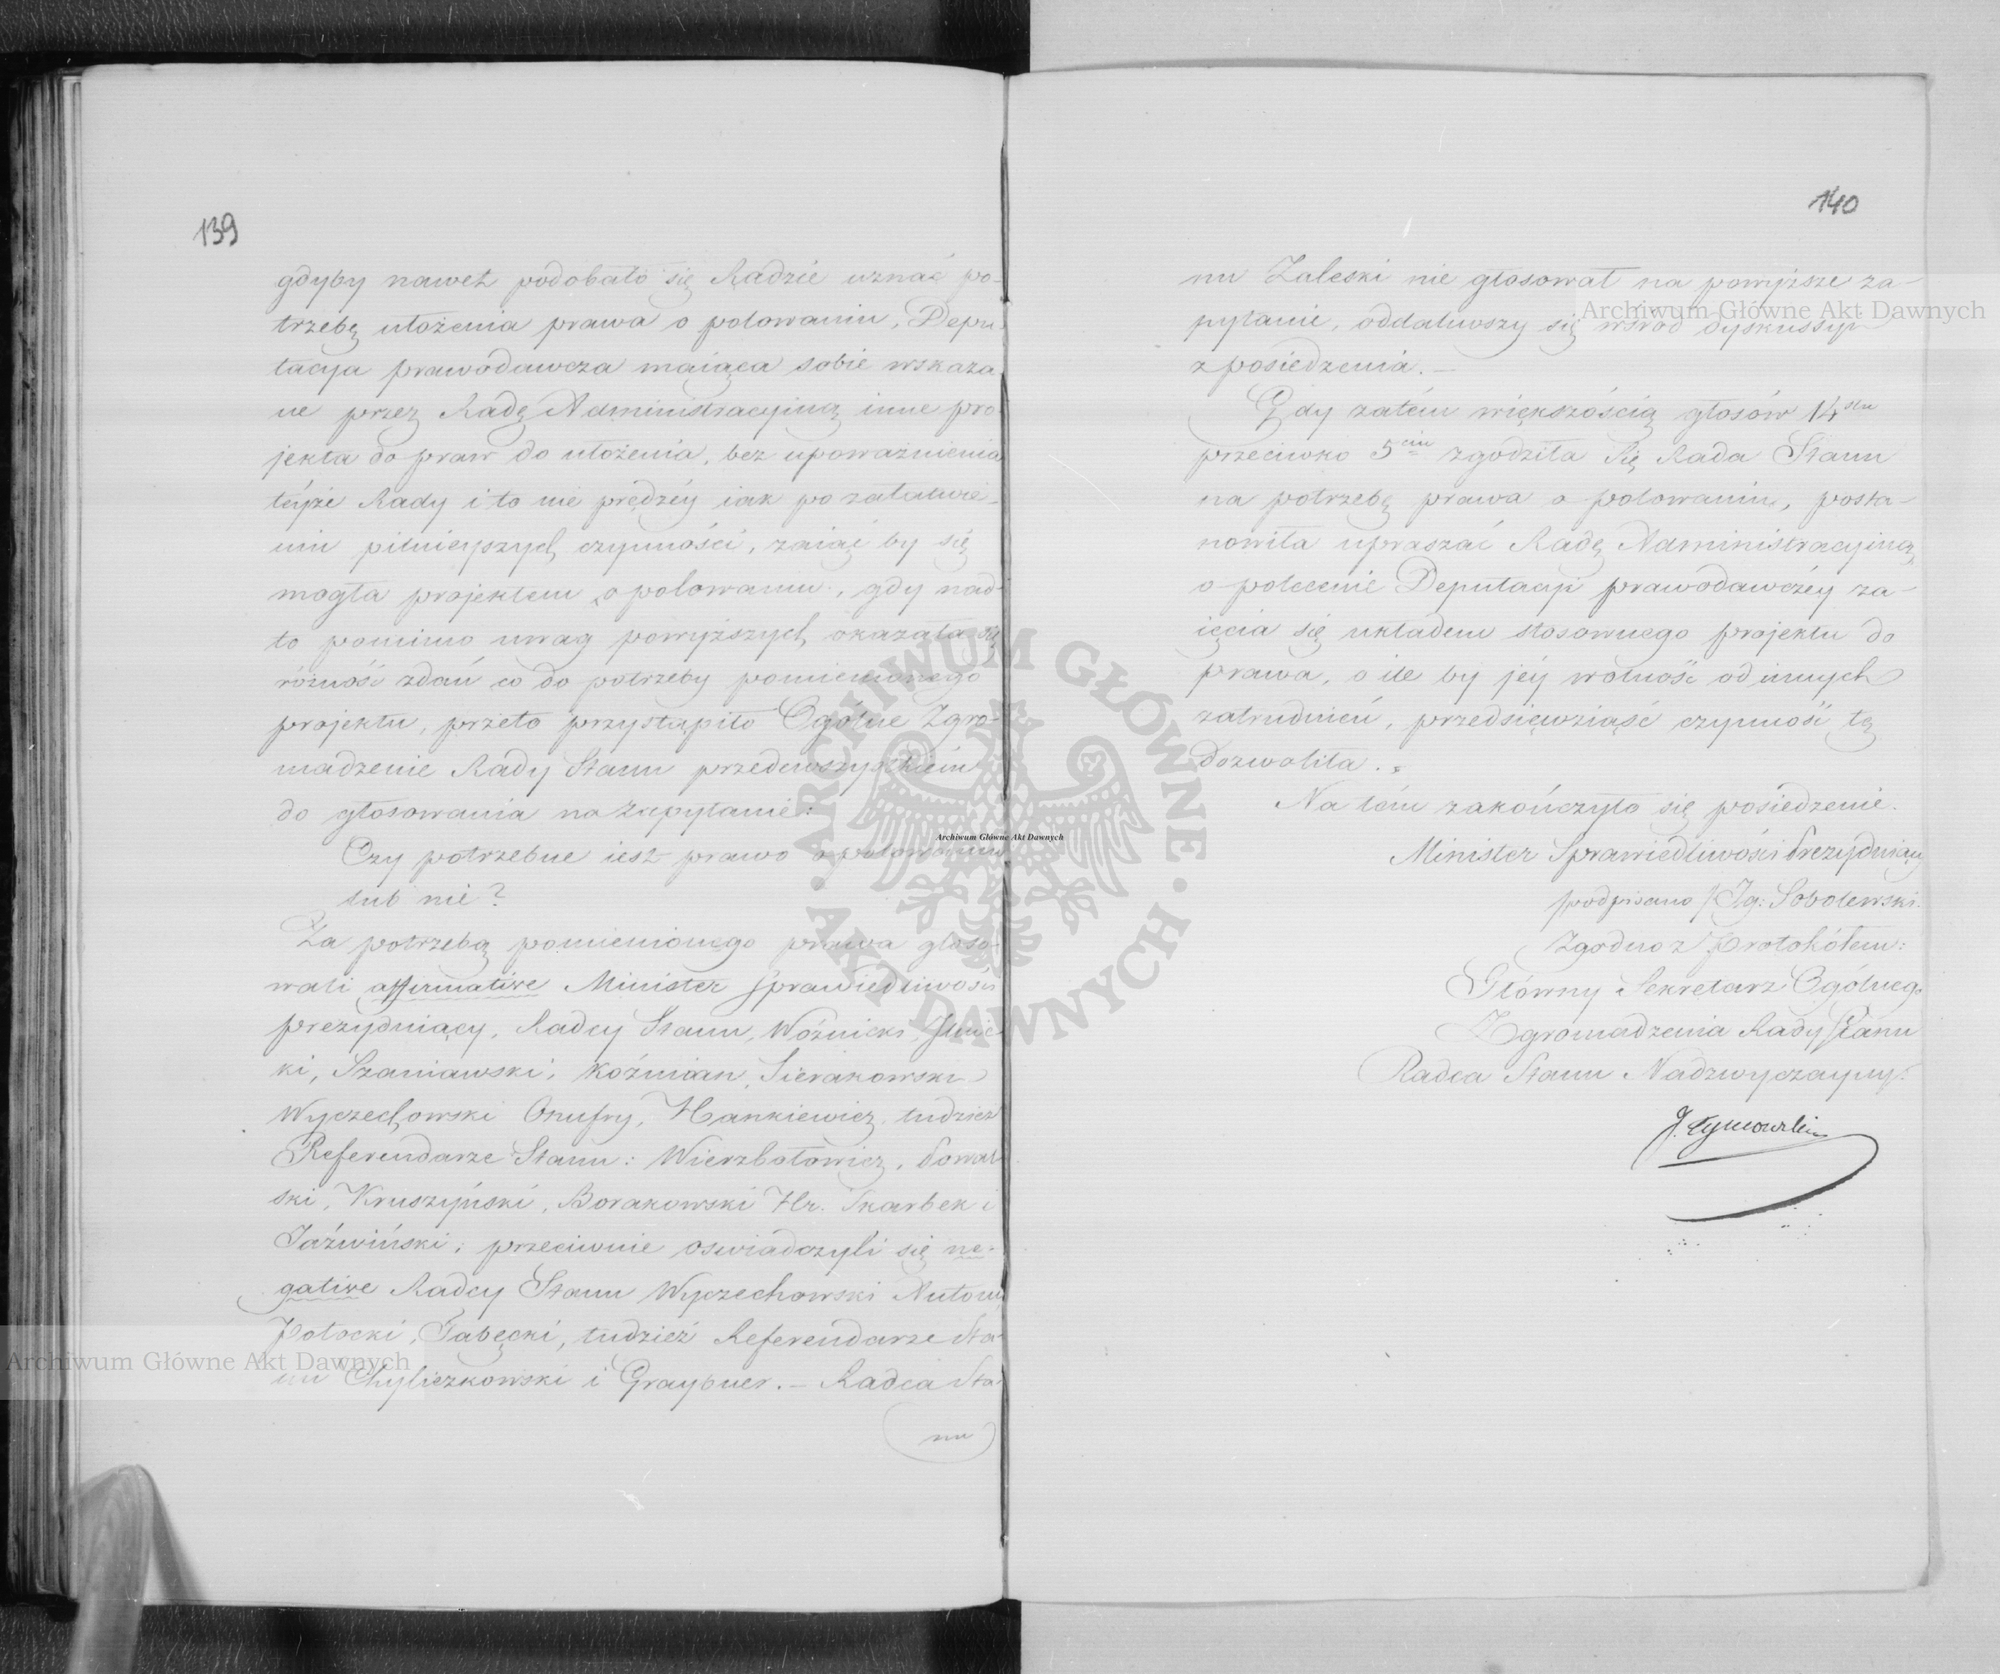 139
gdyby nawet podobało się Radzie uznać po-
trzebę ułożenia prawa o polowaniu, Depu-
tacya prawodawcza maiąca sobie wskaza
ne przez Radę Administracyiną inne pro-
jekta do praw do ułożenia, bez upoważnienia
téyże Rady i to nie prędzéy iak po załatwie-
niu pilnieyszych czynności, zaiąć by się
mogła projektem o polowaniu, gdy nad-
to pomimo uwag powyższych okazała się
różność zdań co do potrzeby pomienionego
projektu, przeto przystąpiło Ogólne Zgro-
madzenie Rady Stanu przedewszystkiém
do głosowania na zapytanie:
Czy potrzebne iest prawo o polowaniu
lub nie?
Za potrzebą pomienionego prawa głoso-
wali affirmative Minister Sprawiedliwości
prezyduiący, Radcy Stanu, Woźnicki,
ki, Szaniawski, Koźmian, Sierakowski
Wyczechowski Onufry, Hankiewicz, tudzież
Referendarze Stanu: Wierzbołowicz, Sowal
ski, Kruszyński, Borakowski Hr. Skarbek i
Jaźwiński; przeciwnie oswiadczyli się ne-
gative Radcy Stanu Wyczechowski Antoni
Potocki, Gabęcki, tudzież Referendarze Sta-
nu Chyliczkowski i Graybner. – Radca Sta-
nu
140
nu Zaleski nie głosował na powyższe za-
pytanie, oddaliwszy się wśród dyskussyi
z posiedzenia. –
Gdy zatém większością głosów 14stu
przeciwko 5ciu zgodziła się Rada Stanu
na potrzebę prawa o polowaniu, posta-
nowiła upraszać Radę Administracyiną
o polecenie Deputacyi prawodawczéy za-
ięcia się układem stosownego projektu do
prawa, o ile by jéy wolność od innych
zatrudnień, przedsięwziąść czynność tę
dozwoliła.
Na tém zakończyło się posiedzenie.
Minister Sprawiedliwości Prezyduiący
podpisano / Ig: Sobolewski.
Zgodno z Protokółem:
Główny Sekretarz Ogólnego
Zgromadzenia Rady Stanu
Radca Stanu Nadzwyczayny.
J. Tymowski
Archiwum Główne Akt Dawnych
Archiwum Główne Akt Dawnych
Archiwum Główne Akt Dawnych
ARCHIWUM GŁÓWNE · AKT DAWNYCH ·